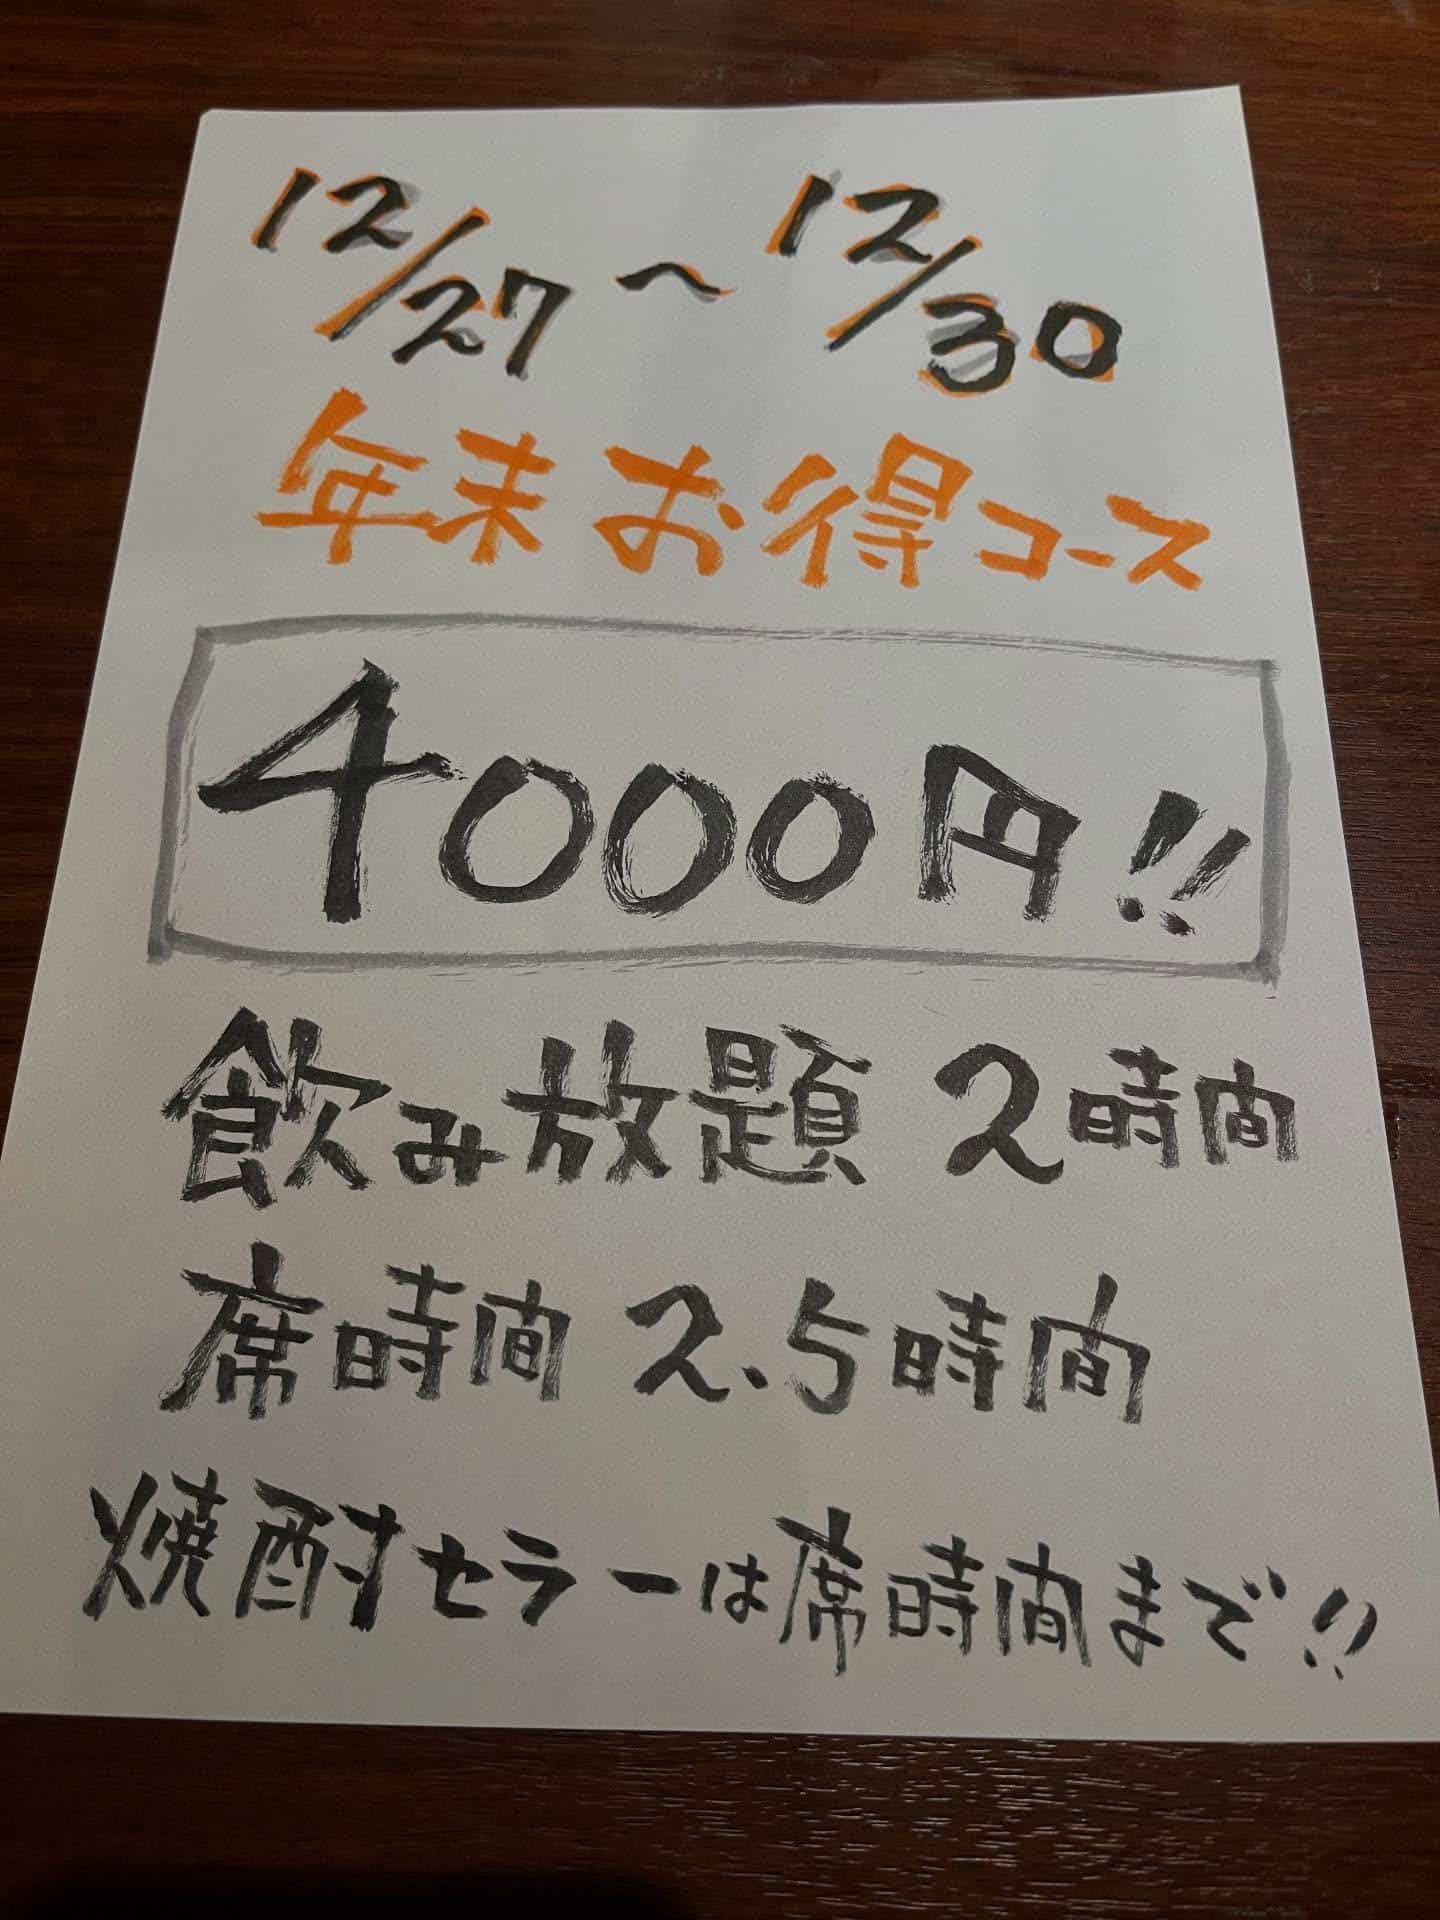 12/27～12/30
年末お得コース
4000円!!
飲み放題 2時間
席時間 2.5時間
焼酎セラーは席時間まで!!